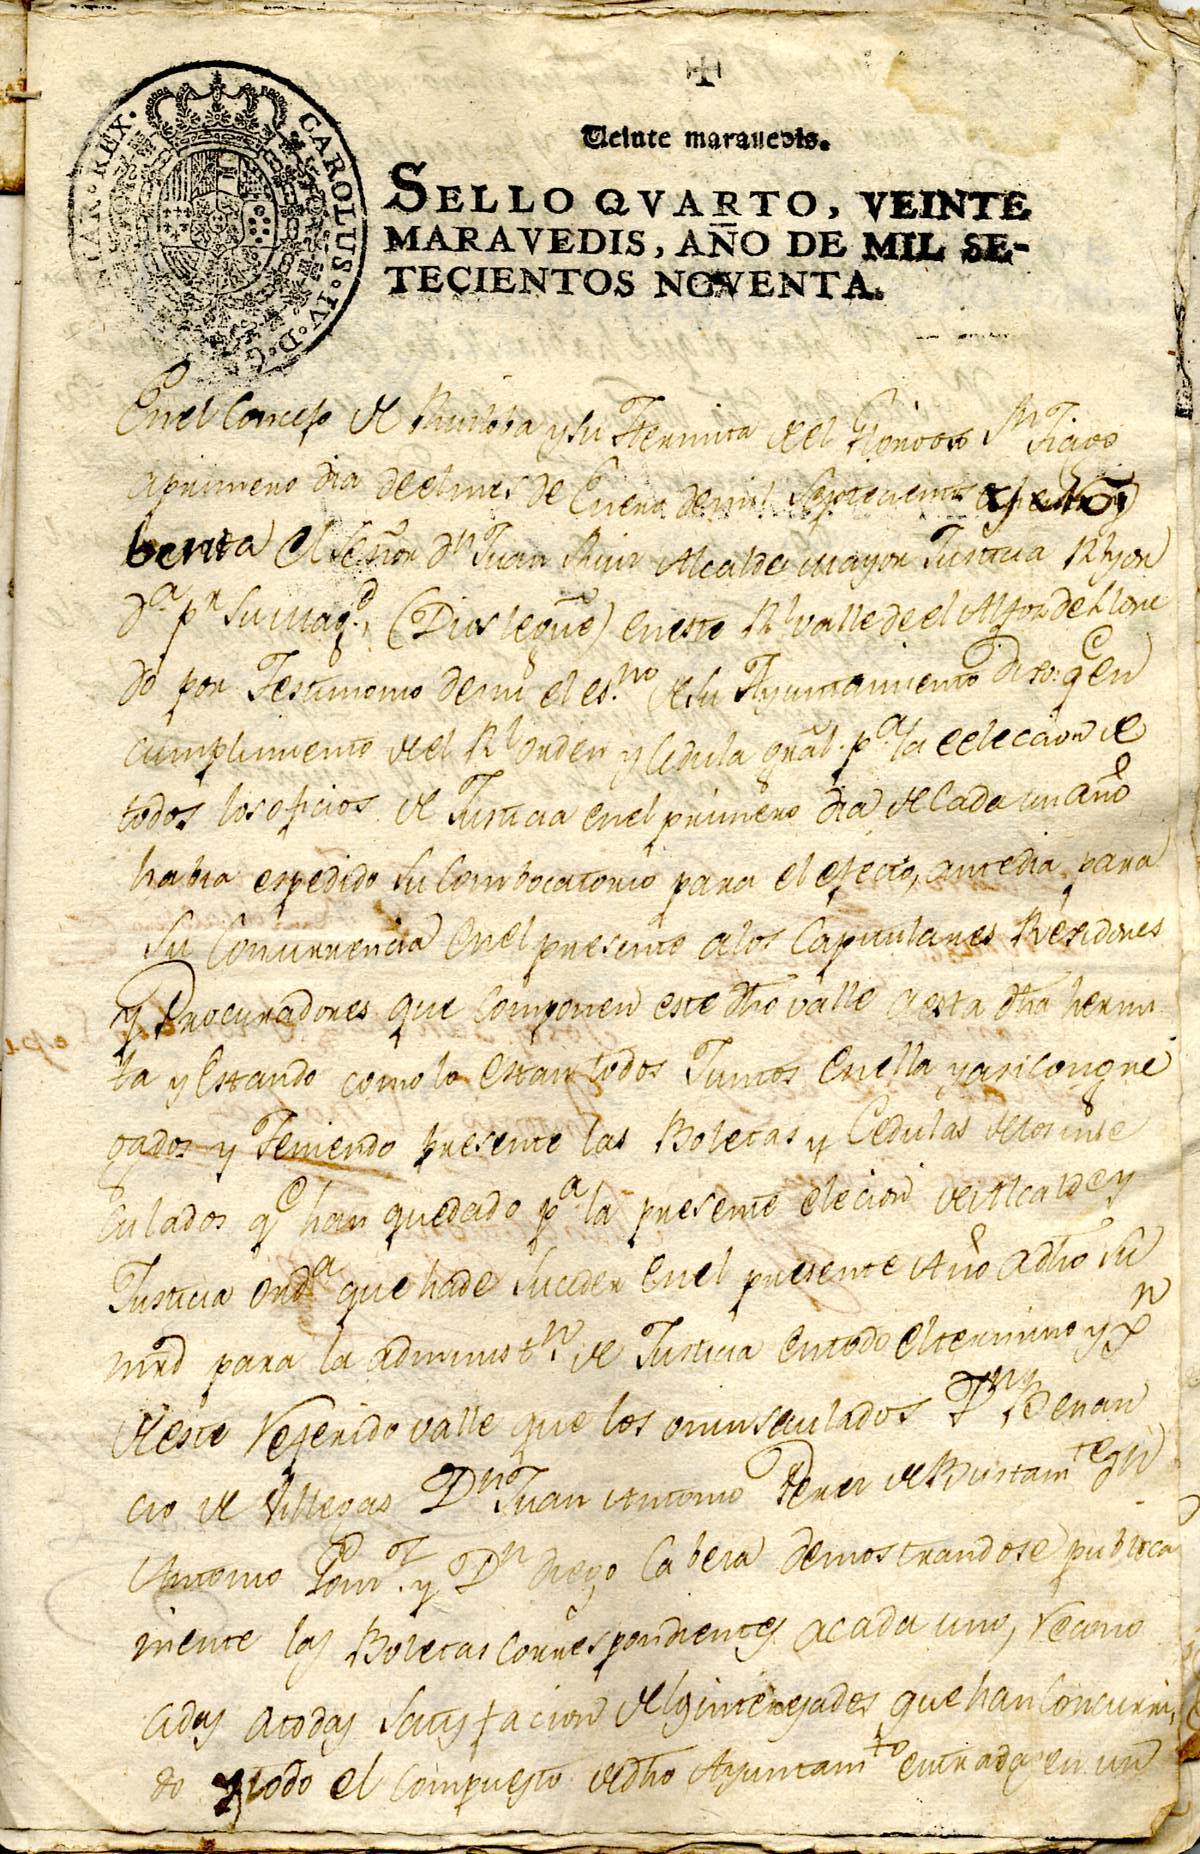 CAROLUS · IV · D · G
AR · REX ·
Veinte maravedis.
SELLO QVARTO, VEINTE
MARAVEDIS, AÑO DE MIL SE-
TECIENTOS NOVENTA.
En el Concejo de Ruiloba y su Hermita de el Glorioso Sn
a primero dia de el mes de Enero de mil Setecientos
benta el Señor Dn Juan Ruiz Alcalde mayor Justicia
Da pr Su Magd, (Dios le gue) en este Rl valle de el Alfoz de Llore
do por Testimonio de mi el esno de su Ayuntamiento Dixo: qe en
cumplimiento de el Rl orden y Cedula gral. pa la eleccion de
todos los oficios de Justicia en el primero dia de Cada un año
habia espedido su Combocatorio para el efecto, ante dia para
su Concurrencia en el presente a los Capitulares Residores
y Procuradores que Componen este dho valle a esta dha hermi
ta y Estando como lo Estan todos Juntos en ella y asi congre
gados y Teniendo presente las Boletas y Cedulas de los inse
culados qe han quedado pa la presente elecion de Alcalde y
Justicia orda que ha de Suceder en el presente Año a dho su
mrd para la administn. de Justicia en todo el termino y
de este referido valle que los Dn Benan
cio de Villegas Dn Juan Antonio Perez de Bustamte
Antonio y Dn diego Cabeza demostrandose publica
mente las Boletas Correspondientes a cada uno, recono
cidas a todas Satisfacion de los interesados que han Concurri
do y todo el compuesto de dho Ayuntamto entradas en un